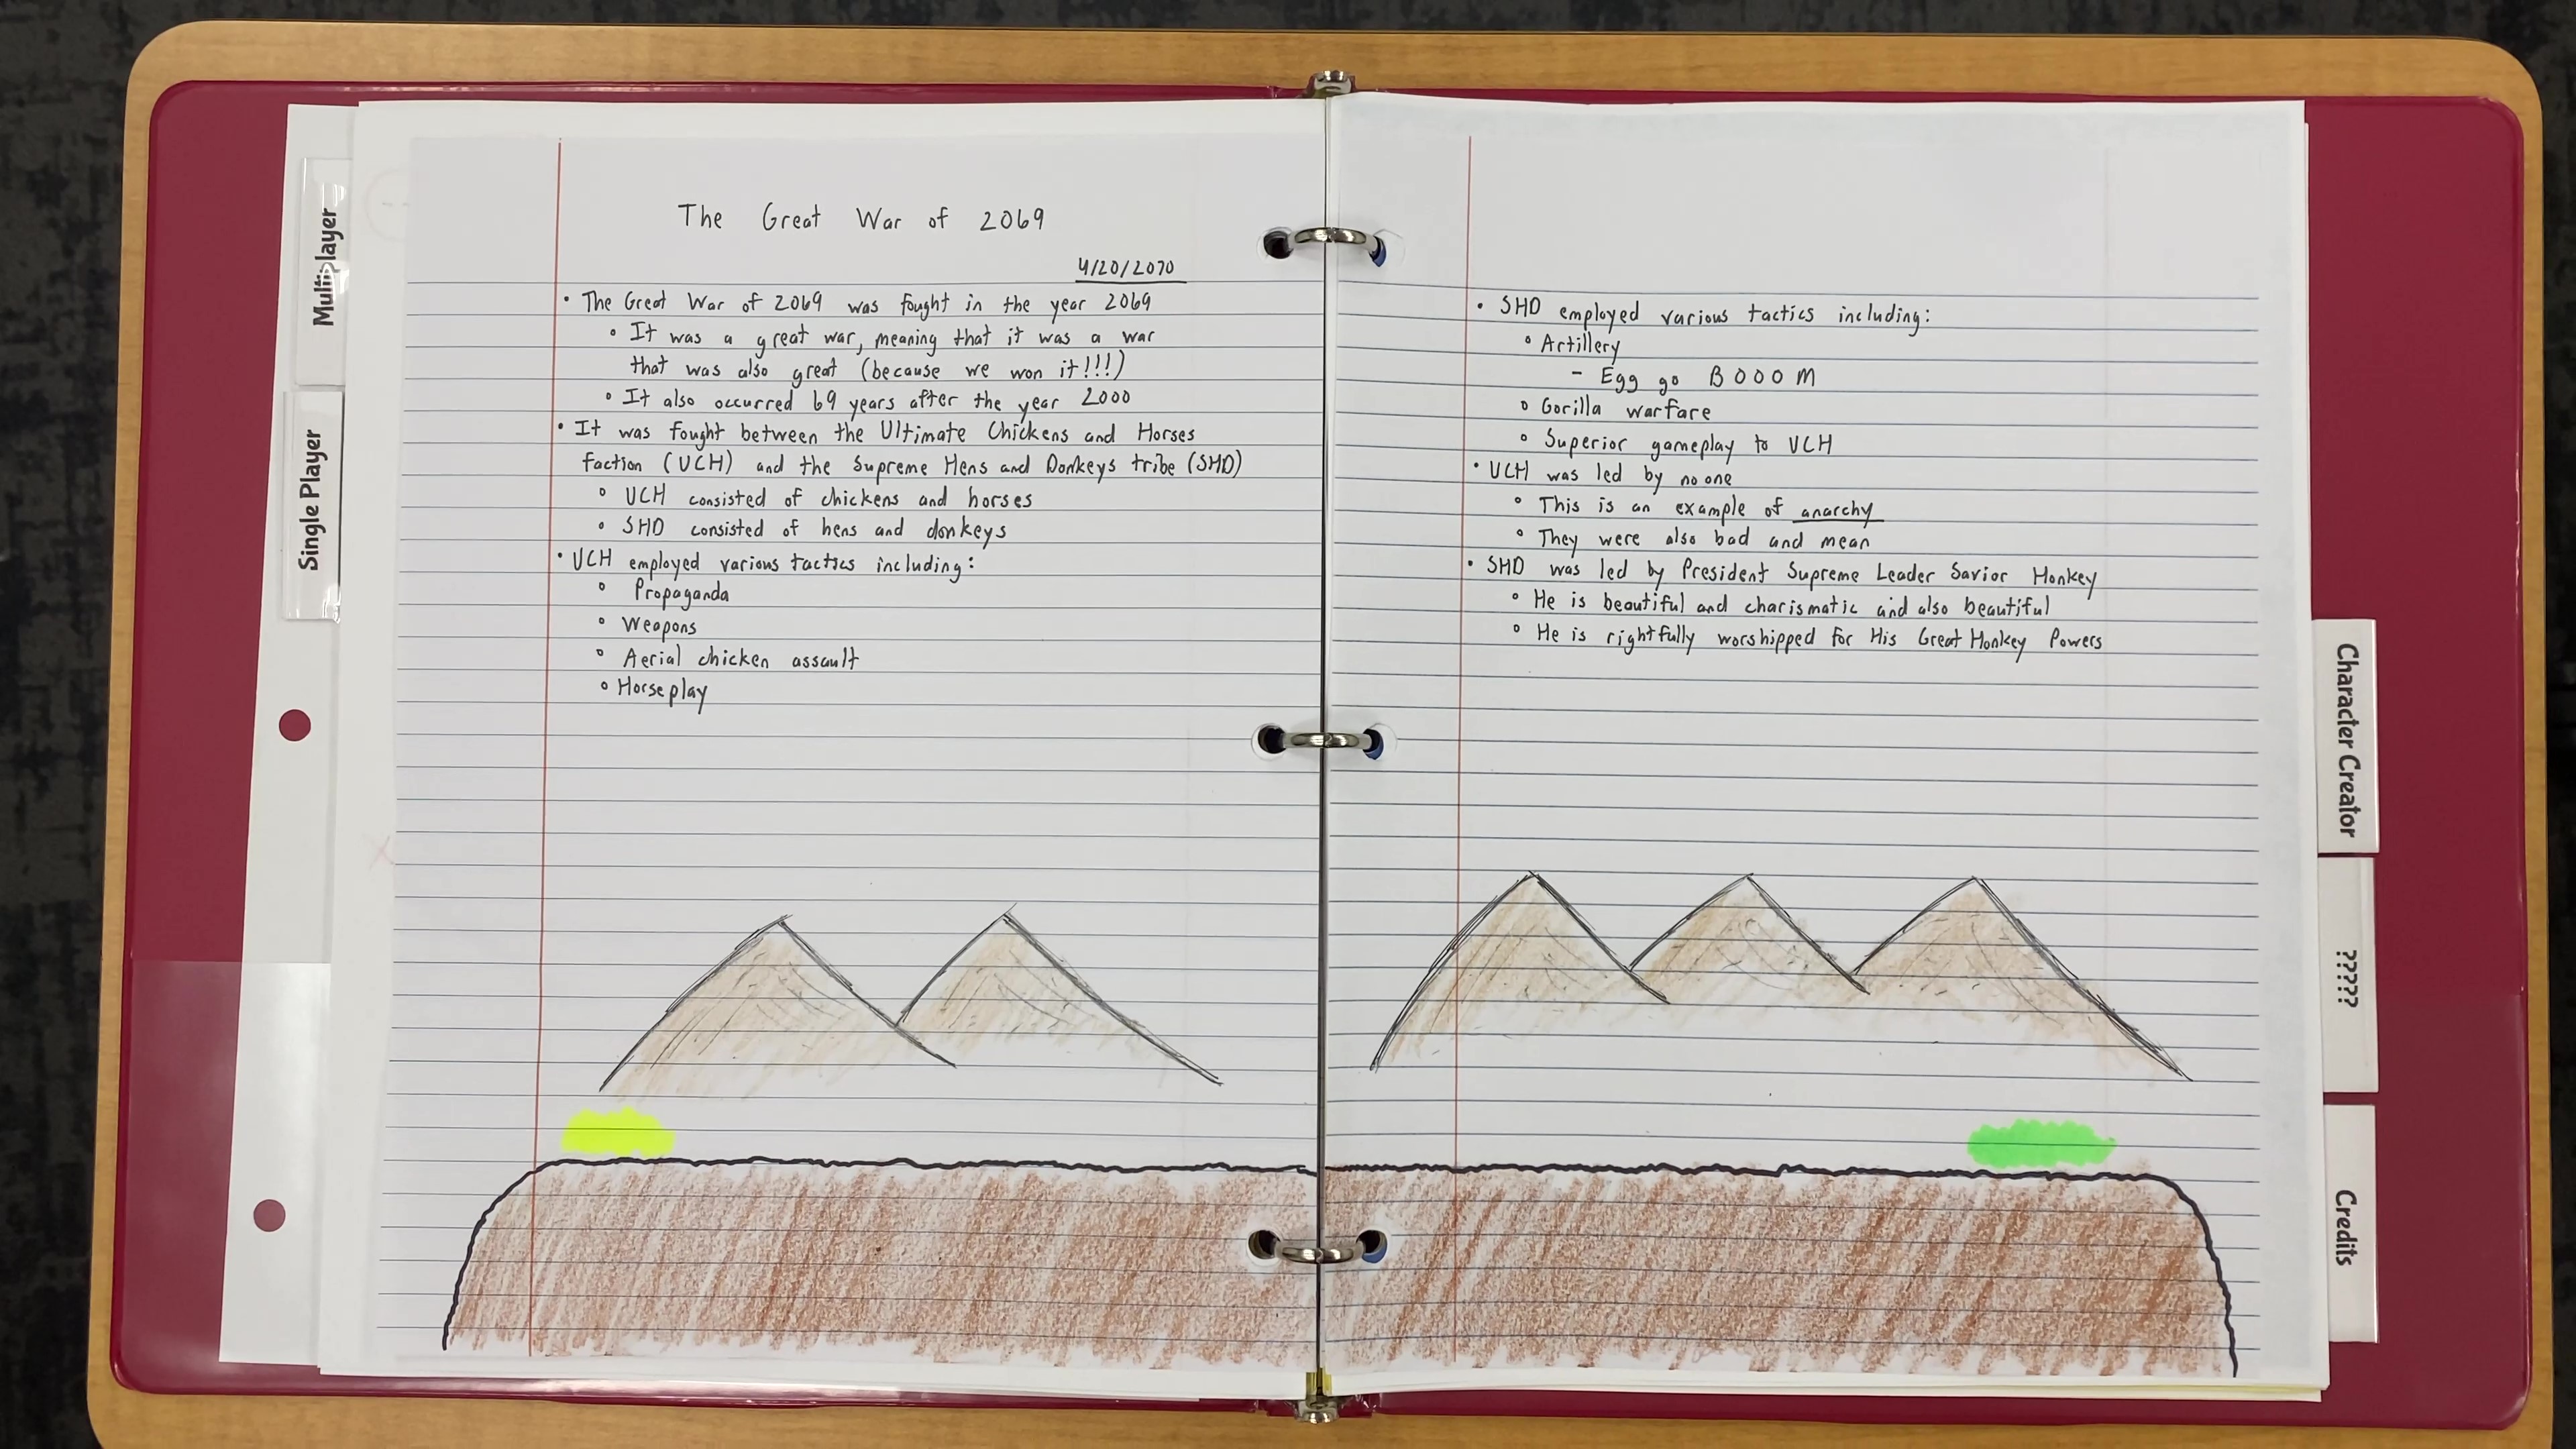 Multiplayer
Single Player
The Great War of 2069
4/20/2070
• The Great War of 2069 was fought in the year 2069
◦ It was a great war, meaning that it was a war
that was also great (because we won it!!!)
◦ It also occurred 69 years after the year 2000
• It was fought between the Ultimate Chickens and Horses
faction (UCH) and the Supreme Hens and Donkeys tribe (SHD)
◦ UCH consisted of chickens and horses
◦ SHD consisted of hens and donkeys
• UCH employed various tactics including:
◦ Propaganda
◦ Weapons
◦ Aerial chicken assault
◦ Horseplay
• SHD employed various tactics including:
◦ Artillery
- Egg go BOOOM
◦ Gorilla warfare
◦ Superior gameplay to UCH
• UCH was led by no one
◦ This is an example of anarchy
◦ They were also bad and mean
• SHD was led by President Supreme Leader Savior Honkey
◦ He is beautiful and charismatic and also beautiful
◦ He is rightfully worshipped for His Great Honkey Powers
Character Creator
?????
Credits